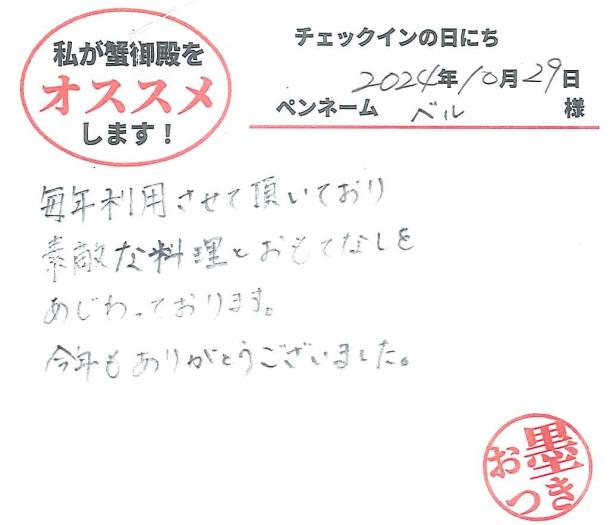 私が蟹御殿を
オススメ
します！
チェックインの日にち
2024年10月29日
ペンネーム ベル 様
毎年利用させて頂いており
素敵な料理とおもてなしを
あじわっております。
今年もありがとうございました。
お墨
つき